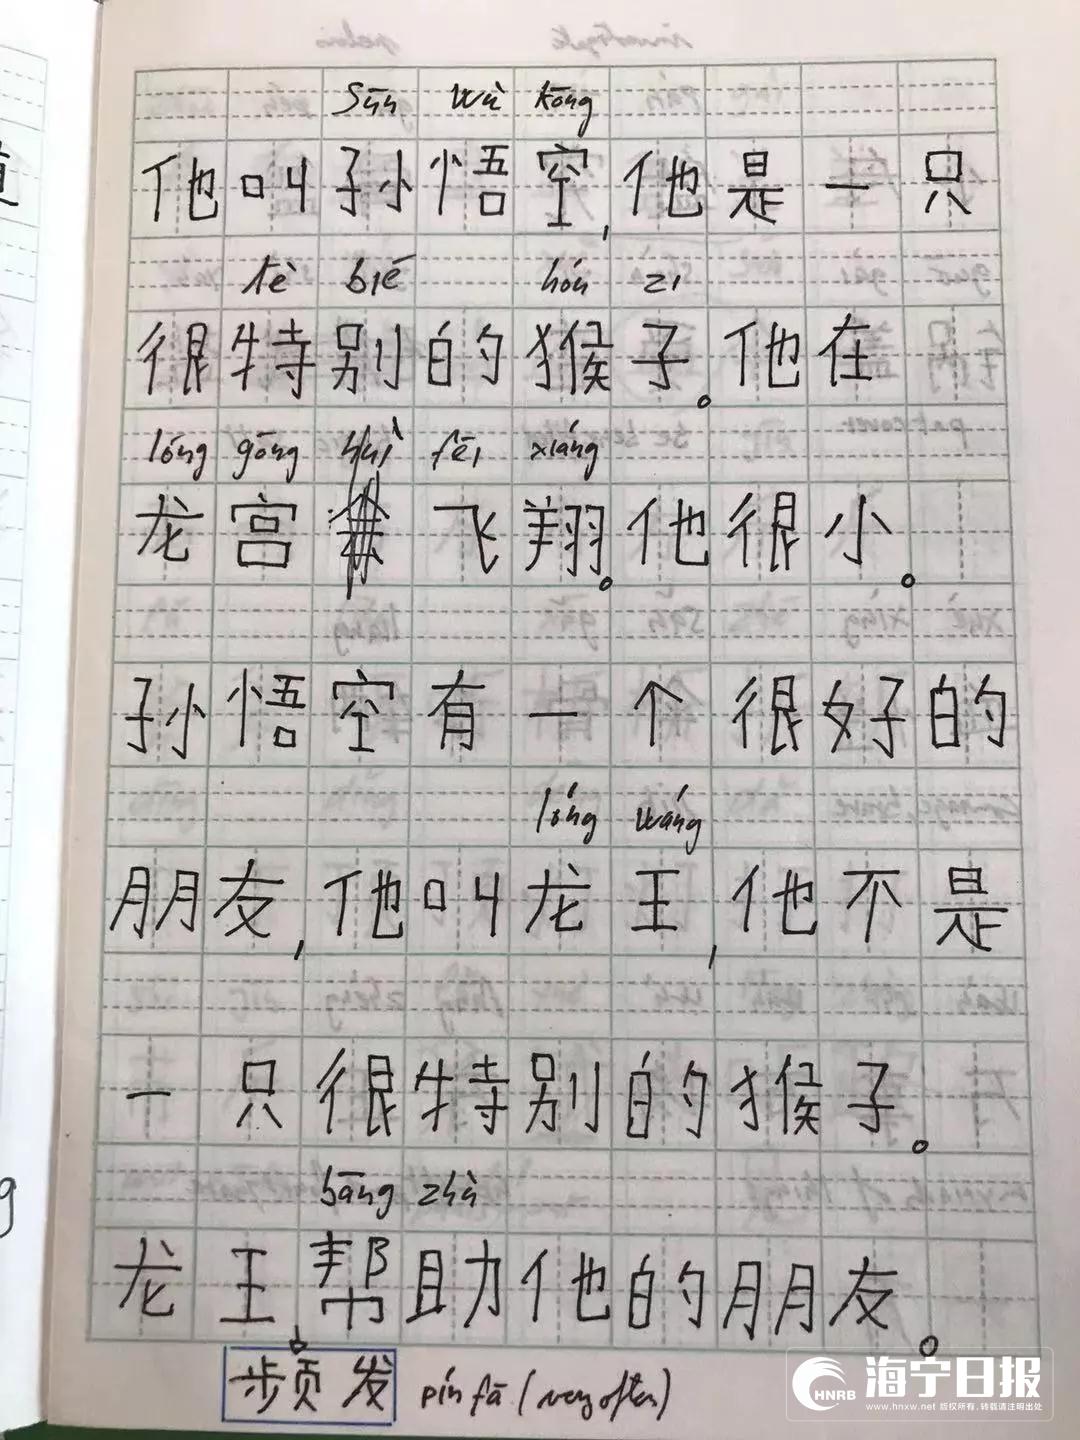 Sūn wù kōng
他叫孙悟空,他是一只
tè bié hóu zi
很特别的猴子。他在
lóng gōng huì fēi xiáng
龙宫飞翔。他很小。
孙悟空有一个很好的
lóng wáng
朋友,他叫龙王,他不是
一只很特别的猴子。
bāng zhù
龙王帮助他的朋友。
频发 pín fā (very often)
HNRB 海宁日报
www.hnxw.net 版权所有,转载请注明出处